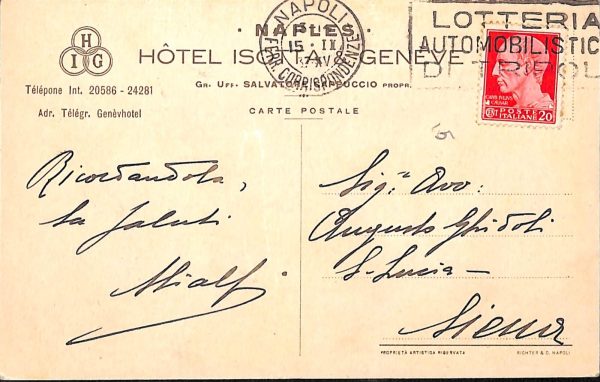 H
I G
· NAPLES ·
HÔTEL ISOTTA & GENÈVE
GR. UFF. SALVATORE CAPUCCIO PROPR.
Télépone Int. 20586 - 24281
Adr. Télégr. Genèvhotel
CARTE POSTALE
NAPOLI
15 . II
FERR. CORRISPONDENZE
LOTTERIA
AUTOMOBILISTICA
DI TRIPOLI
CAIVS IVLIVS
CAESAR
POSTE
ITALIANE
20
Ricordandola,
La saluti
Sig. Avo:
Augusto Ghidoli
S. Lucia -
Siena
PROPRIETÀ ARTISTICA RISERVATA
RICHTER & C. NAPOLI